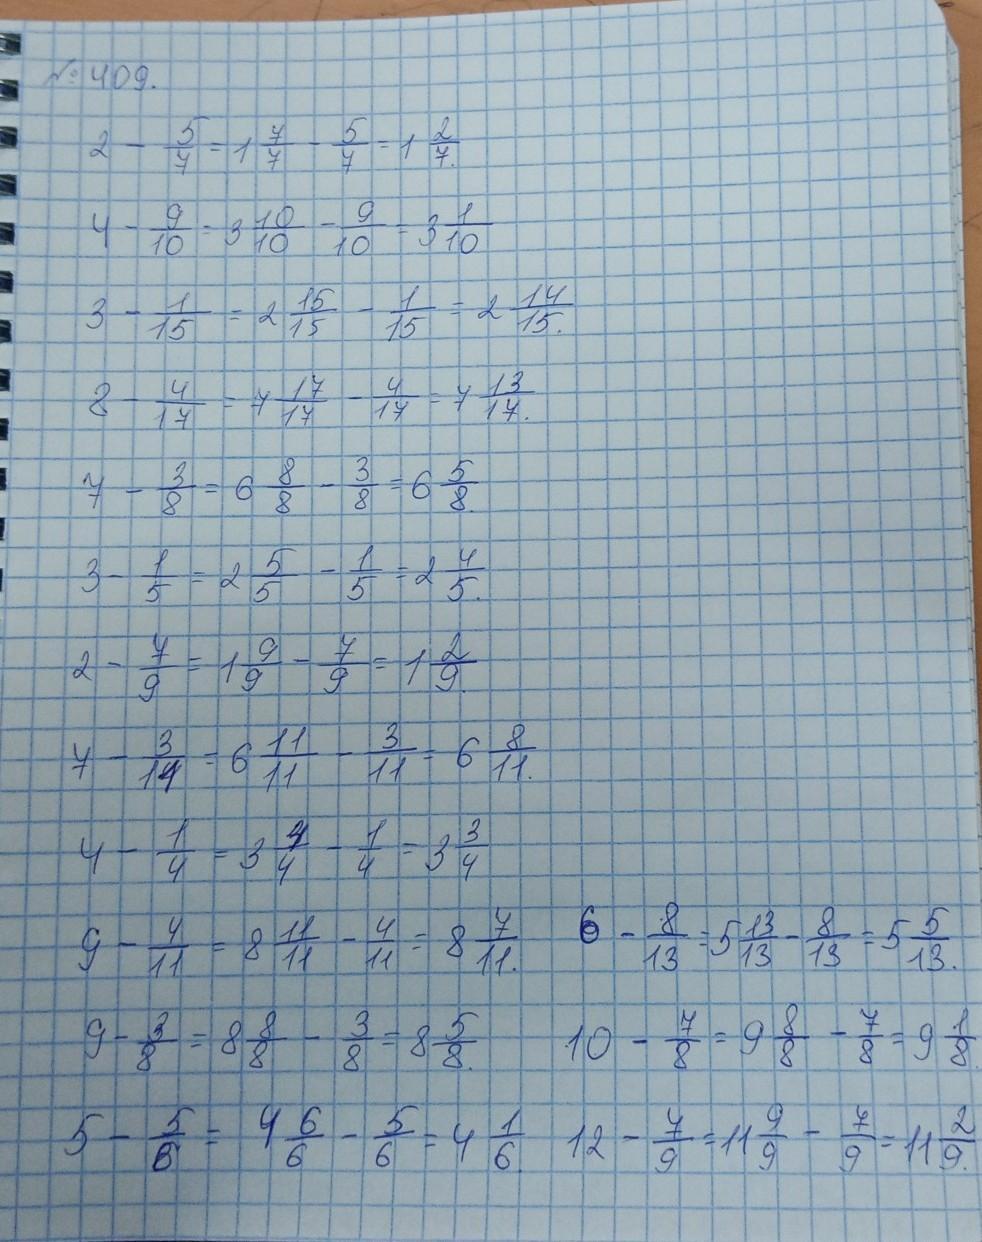 № 409.
2 - 5/7 = 1 7/7 - 5/7 = 1 2/7.
4 - 9/10 = 3 10/10 - 9/10 = 3 1/10
3 - 1/15 = 2 15/15 - 1/15 = 2 14/15.
8 - 4/17 = 7 17/17 - 4/17 = 7 13/17.
7 - 3/8 = 6 8/8 - 3/8 = 6 5/8.
3 - 1/5 = 2 5/5 - 1/5 = 2 4/5.
2 - 7/9 = 1 9/9 - 7/9 = 1 2/9.
7 - 3/11 = 6 11/11 - 3/11 = 6 8/11.
4 - 1/4 = 3 4/4 - 1/4 = 3 3/4
9 - 4/11 = 8 11/11 - 4/11 = 8 7/11.
6 - 8/13 = 5 13/13 - 8/13 = 5 5/13.
9 - 3/8 = 8 8/8 - 3/8 = 8 5/8.
10 - 7/8 = 9 8/8 - 7/8 = 9 1/8.
5 - 5/6 = 4 6/6 - 5/6 = 4 1/6.
12 - 7/9 = 11 9/9 - 7/9 = 11 2/9.